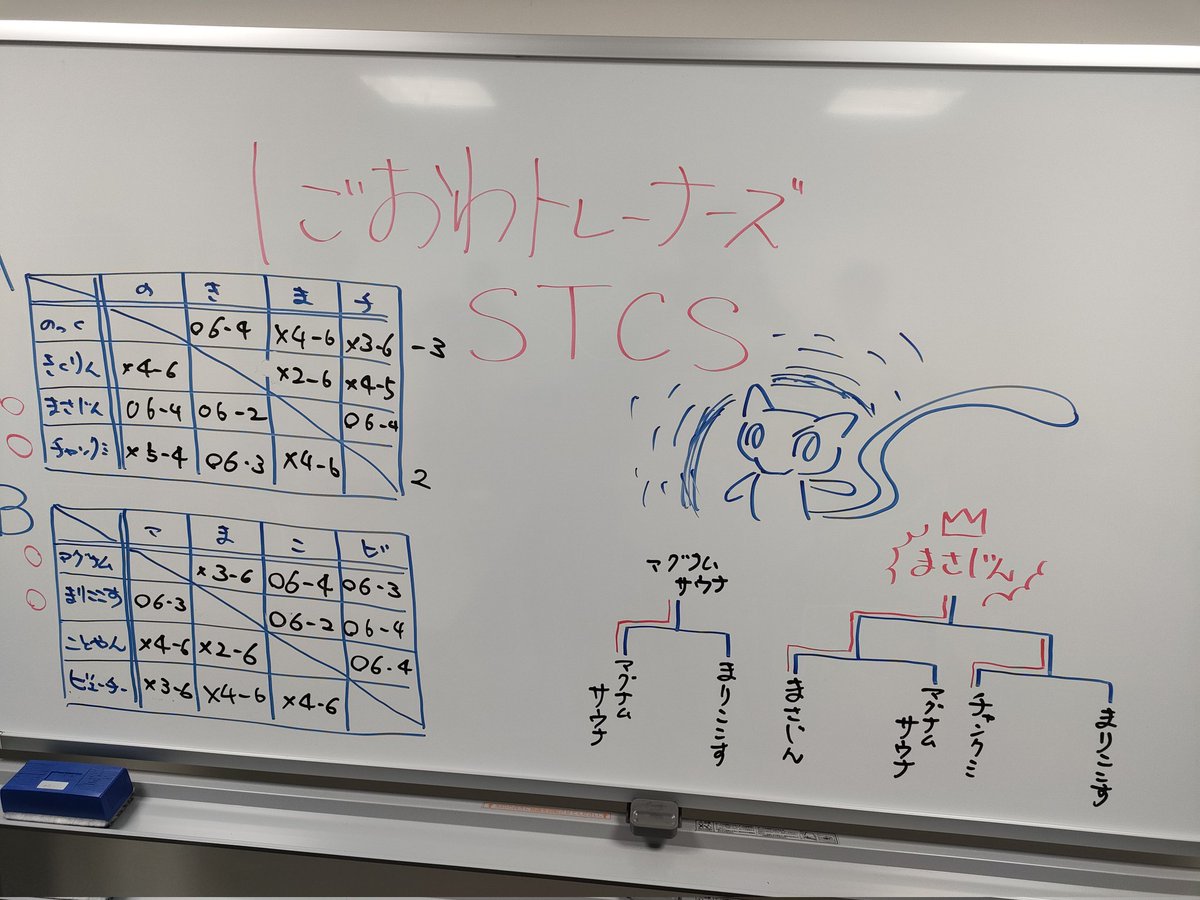 しごおわトレーナーズ
STCS
の き ま チ
のっく 06-4 ×4-6 ×3-6 -3
きくりん ×4-6 ×2-6 ×4-5
○ まさじん 06-4 06-2 06-4
○ チャンクミ ×5-4 06-3 ×4-6 2
B
マ ま こ ビ
○ マグナム ×3-6 06-4 06-3
○ まりここす 06-3 06-2 06-4
ことやん ×4-6 ×2-6 06-4
ビューチー ×3-6 ×4-6 ×4-6
マグナム
サウナ
マグナム
サウナ
まりここす
まさじん
まさじん
マグナム
サウナ
チャンクミ
まりここす